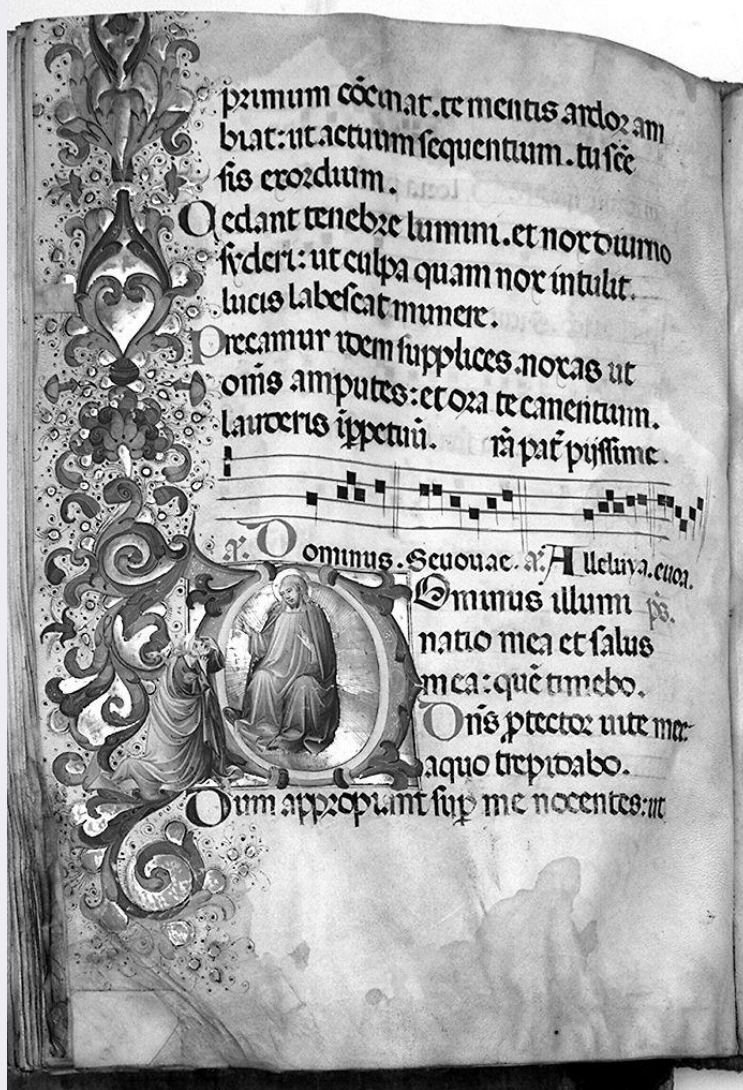 primum cōcinat. te mentis ardor am
biat: ut actuum sequentium. tu scē
sis exordium.
Cedant tenebre lumini. et nox diurno
syderi: ut culpa quam nox intulit.
lucis labescat munere.
Precamur idem supplices. noxas ut
om̄s amputes: et ora te canentium.
lauderis īppetuū. p̄a pat̄ pijssime.
a. Dominus. Seuouae. a. Alleluya. euoa.
Ominus illumi p̄s.
natio mea et salus
mea: quē timebo.
Dn̄s ꝓtector uite mee:
aquo trepidabo.
Dum appropiant suꝑ me nocentes: ut